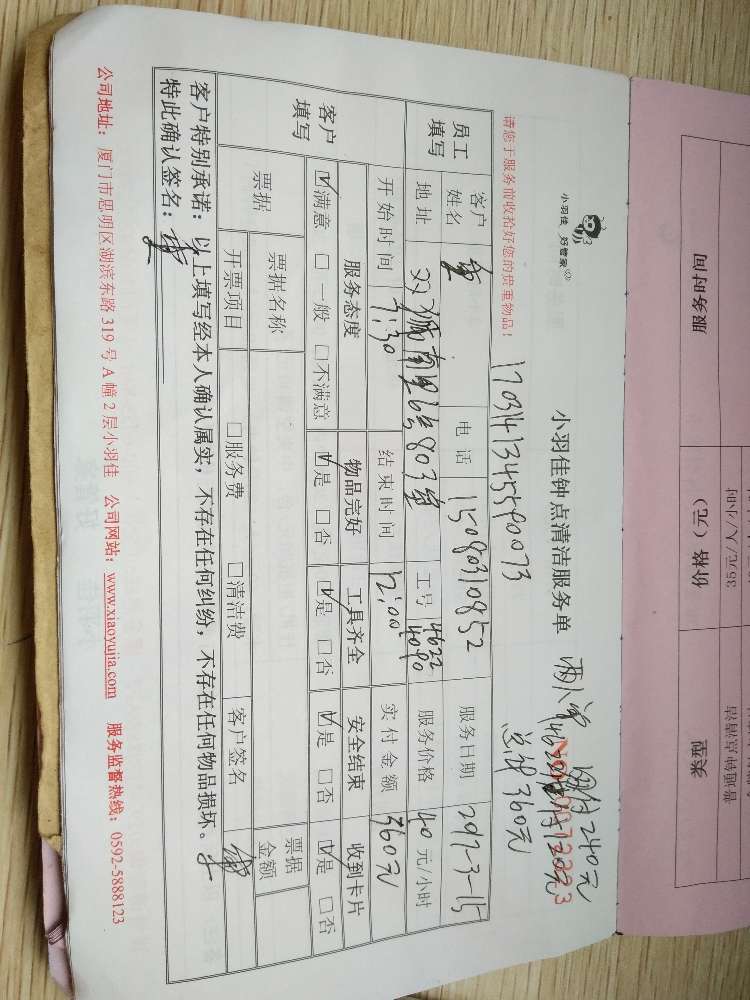 小羽佳 好管家
小羽佳钟点清洁服务单
两人单
总计360元
17031413455590073
请您于服务前收拾好您的贵重物品！
员工填写
客户姓名
电话 15080310852
服务日期 2017-3-15
地址
803室
工号 4622 4090
服务价格 40元/小时
开始时间 7:30
结束时间 12:00
实付金额 360元
客户填写
服务态度 物品完好 工具齐全 安全结束 收到卡片
☑满意 □一般 □不满意 ☑是 □否 ☑是 □否 ☑是 □否 ☑是 □否
票据
票据名称
票据金额
开票项目 □服务费 □清洁费 客户签名
客户特别承诺：以上填写经本人确认属实，不存在任何纠纷，不存在任何物品损坏。
特此确认签名：
公司地址：厦门市思明区湖滨东路 319 号 A 幢 2 层小羽佳 公司网站：www.xiaoyujia.com 服务监督热线：0592-5888123
服务时间 价格（元） 类型
35元/人/小时 普通钟点清洁